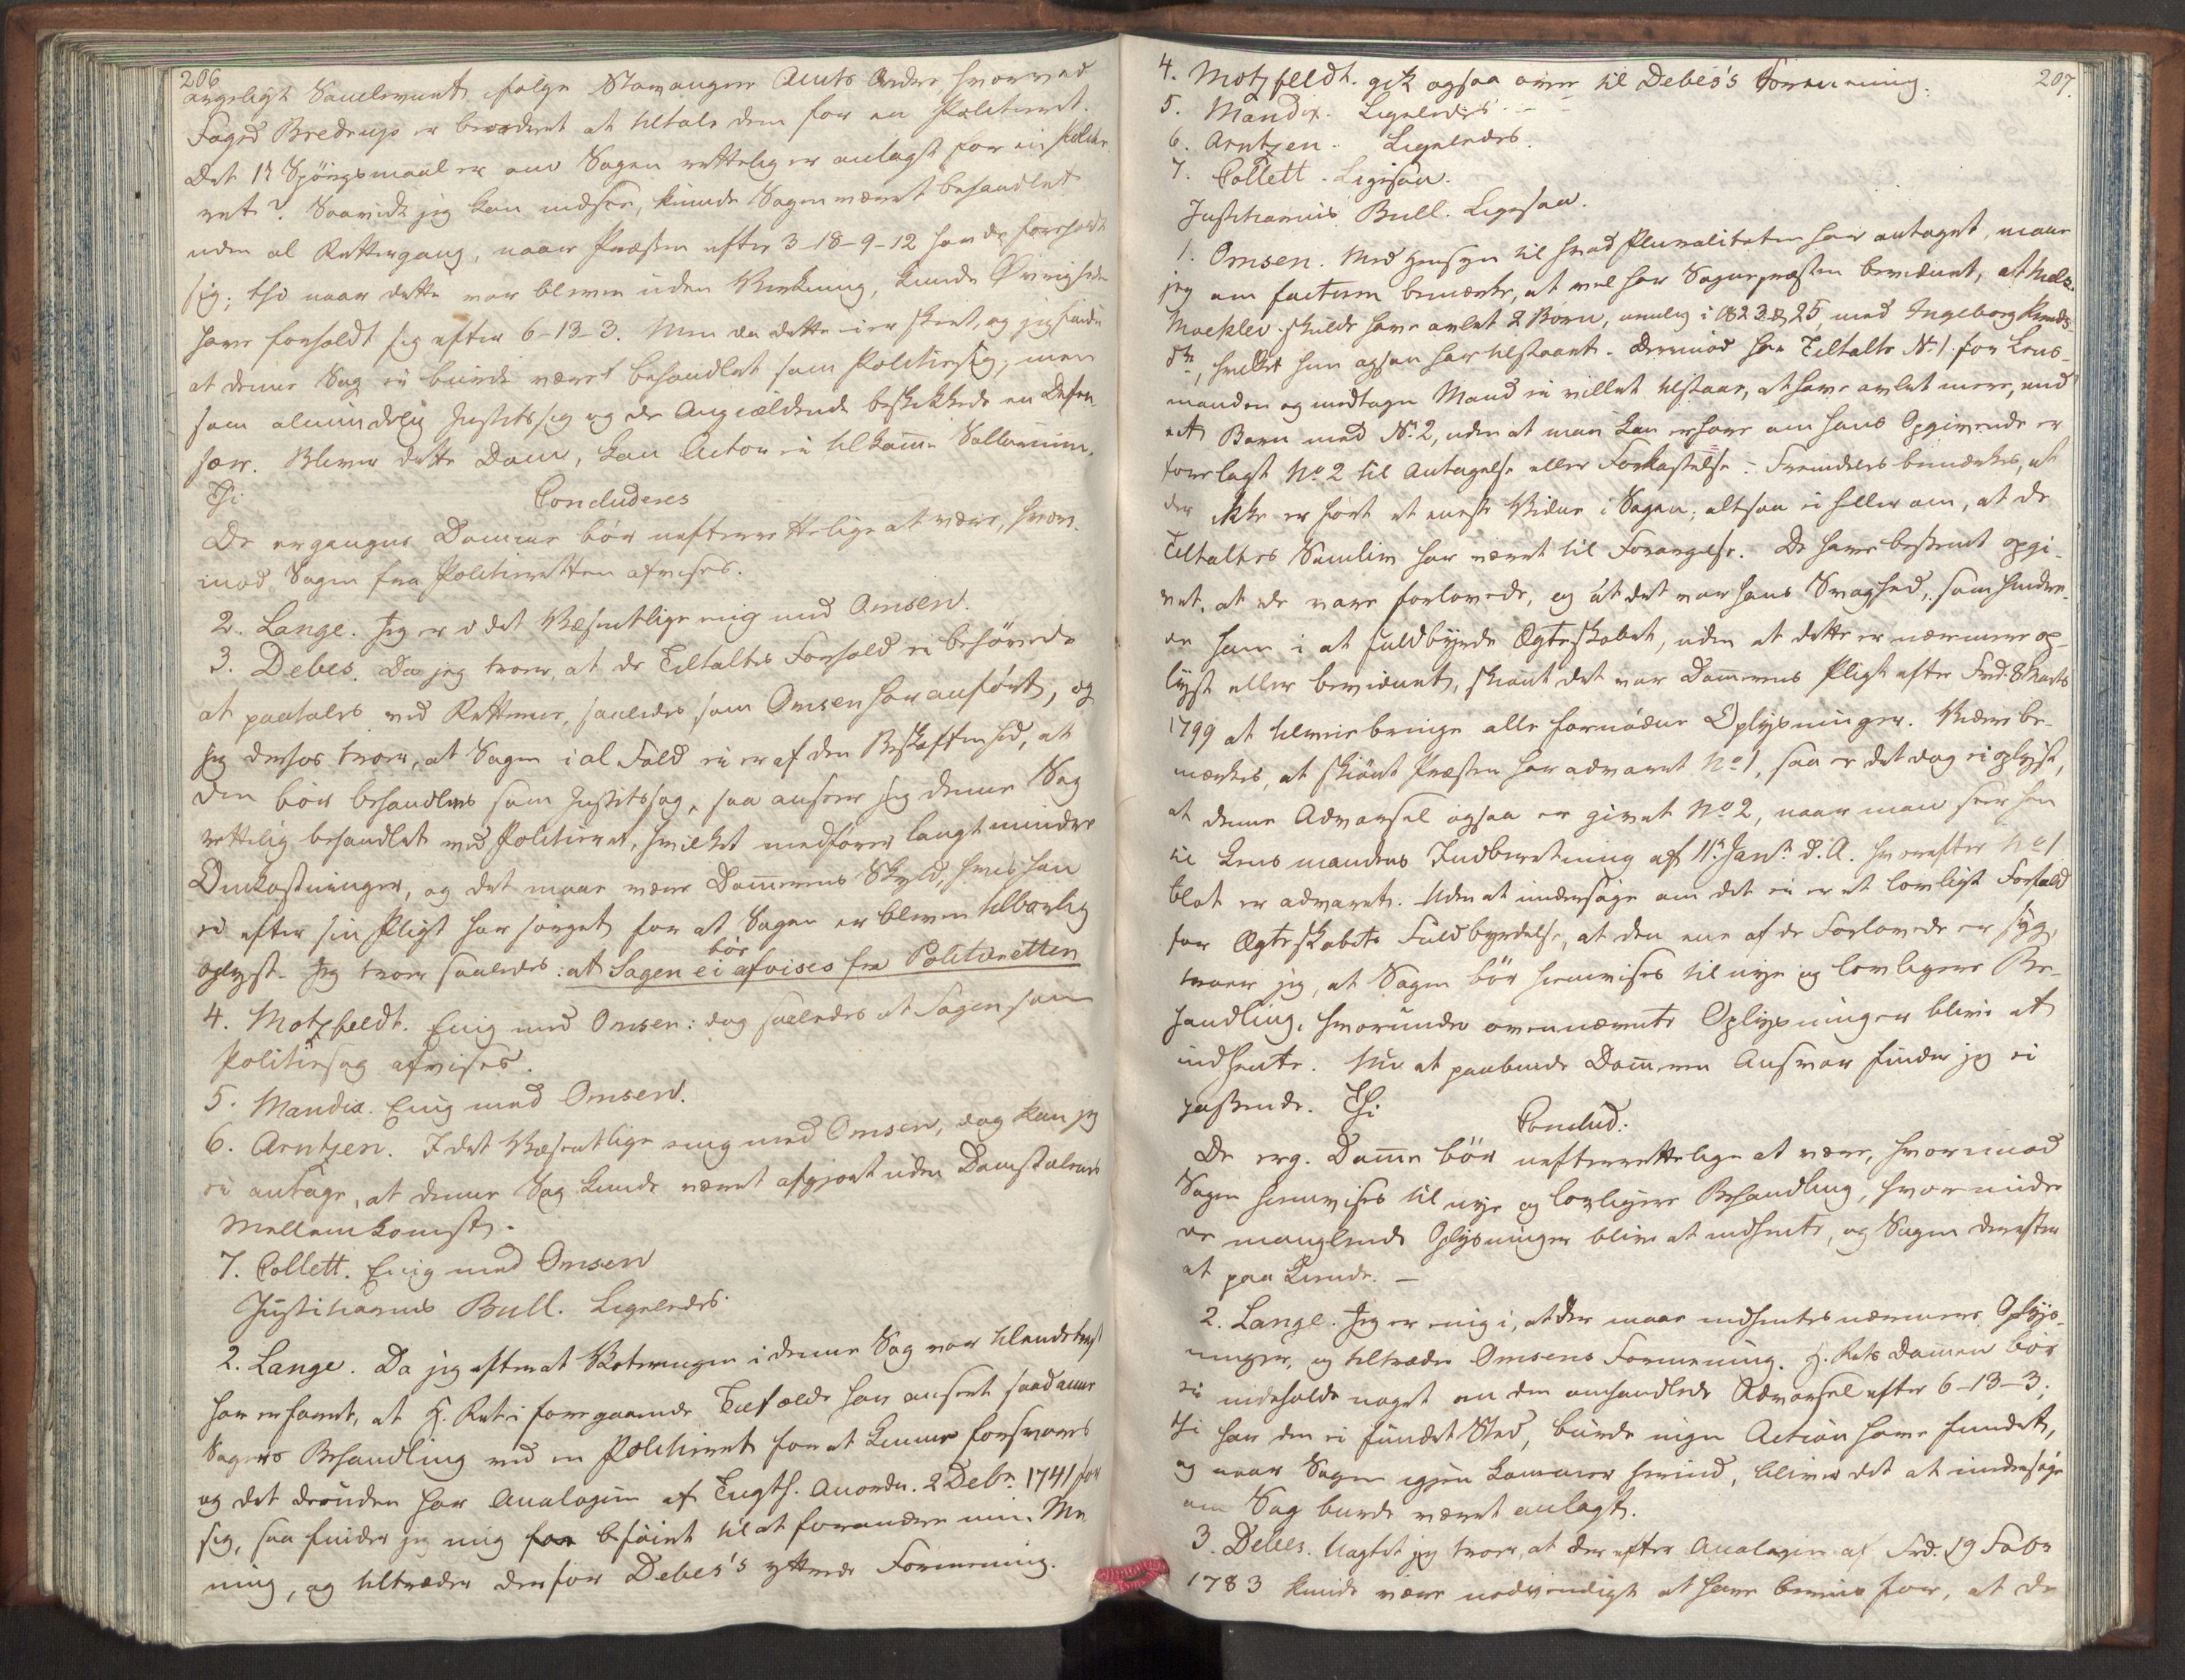 206
argeligt Samlevnet, ifølge Stavanger Amts Ordre hvorved
Foged Bredrup er beordret at tiltale dem for en Politieret.
Det 1te Spörgsmaal er om Sagen rettelig er anlagt for en Politie-
ret? Saavidt jeg kan indsee, kunde Sagen været behandlet
uden al Rettergang, naar Præsten efter 3-18-9-12 havde forholdt
sig; thi naar dette var bleven uden Virkning, kunde Øvrigheden
have forholdt sig efter 6-13-3. Men da dette ei er skeet, og jeg finder
at denne Sag ei burde været behandlet som Politiesag, men
som almindelig Justitssag og de Angieldende beskikkede en Defen-
sor. Bliver dette Dom, kan Actor ei tilkomme Sallarium.
Thi
Concluderes
De ergangne Domme bör uefterrettelige at være, hvor-
imod Sagen fra Politieretten afvises.
2. Lange. Jeg er i det Væsentlige enig med Omsen.
3. Debes. Da jeg troer, at de Tiltaltes Forhold ei behövede
at paatales ved Retterne, saaledes som Omsen har anfört, og
jeg derhos troer, at Sagen i al Fald ei er af den Beskaffenhed, at
den bör behandles som Justitssag, saa anseer jeg denne Sag
rettelig behandlet ved Politieret, hvilket medförer langt mindre
Omkostninger, og det maae være Dommerens Skyld, hvis han
ei efter sin Pligt har sörget for at Sagen er bleven tilbörlig
oplyst. Jeg troer saaledes: at Sagen ei bör afvises fra Politieretten
4. Motzfeldt. Enig med Omsen: dog saaledes at Sagen som
Politiesag afvises.
5. Mandix. Enig med Omsen.
6. Arntzen. I det Væsentlige enig med Omsen, dog kan jeg
ei antage, at denne Sag kunde været afgjort uden Domstolenes
Mellemkomst.
7. Collett. Enig med Omsen
Justitiarius Bull. Ligeledes.
2. Lange. Da jeg efterat Voteringen i denne Sag var tilendebragt
har erfaret, at H. Ret i foregaaende Tilfælde har anseet saadanne
Sagers Behandling ved en Politieret for at kunne forsvares
og det desuden har Analogien af Tugth. Anordn. 2 Debr. 1741 for
sig, saa finder jeg mig beföiet til at forandre min Me-
ning, og tiltræder derfor Debes's yttrede Formening.
207.
4. Motzfeldt. gik ogsaa over til Debes's Formening.
5. Mandix. Ligeledes. -
6. Arntzen. Ligeledes.
7. Collett. Ligesaa.
Justitiarius Bull. Ligesaa.
1. Omsen. Med Hensyn til hvad Pluraliteten har antaget, maae
jeg om factum bemærke, at vel har Sognepræsten bevidnet, at Nels
Maehlev skulde have avlet 2 Börn, nemlig i 1823 og 25, med Ingeborg Knuds-
dtr, hvilket hun ogsaa har tilstaaet. Derimod har Tiltalte No 1 for Lens-
manden og medtagne Mænd ei villet tilstaae, at have avlet mere, end
et Barn med No 2, uden at man kan erfare om hans Opgivende er
forelagt No 2 til Antagelse eller Forkastelse. - Fremdeles bemærkes, at
der ikke er fört et eneste Vidne i Sagen; altsaa ei heller om, at de
Tiltaltes Samliv har været til Forargelse. De have bestemt opgi-
vet, at de vare forlovede, og at det var hans Svaghed, som hindre-
de ham i at fuldbyrde Ægteskabet, uden at dette er nærmere op-
lyst eller bevidnet, skiönt det var Dommerens Pligt efter Frd. 8 Marts
1799 at tilveiebringe alle fornödne Oplysninger. Videre be-
mærkes, at skiönt Præsten har advaret No 1, saa er det dog ei oplyst,
at denne Advarsel ogsaa er givet No 2, naar man seer hen
til Lensmandens Indberetning af 11te Janr. d. A. hvorefter No 1
blot er advaret. Uden at undersöge om det ei er et lovligt Forfald
for Ægteskabets Fuldbyrdelse, at den ene af de Forlovede er syg,
troer jeg, at Sagen bör henvises til nye og lovligere Be-
handling, hvorunder ovennævnte Oplysninger blive at
indhente. Men at paabyrde Dommeren Ansvar finder jeg ei
passende. Thi
Conclud:
De erg. Domme bör uefterrettelige at være, hvorimod
Sagen henvises til nye og lovligere Behandling, hvorunder
de manglende Oplysninger blive at indhente, og Sagen derefter
at paakiende. -
2. Lange. Jeg er enig i, at der maae indhentes nærmere Oplys-
ninger, og tiltræder Omsens Formening. H. Rets Dommen bör
ei indeholde noget om den omhandlede Advarsel efter 6-13-3;
Thi har den ei fundet Sted, burde ingen Action have fundet,
og naar Sagen igjen kommer herind, bliver det at undersöge
om Sag burde været anlagt.
3. Debes. Uagtet jeg troer, at der efter Analogien af Frd. 19 Febr
1783 kunde være nödvendigt at have Beviis for, at de